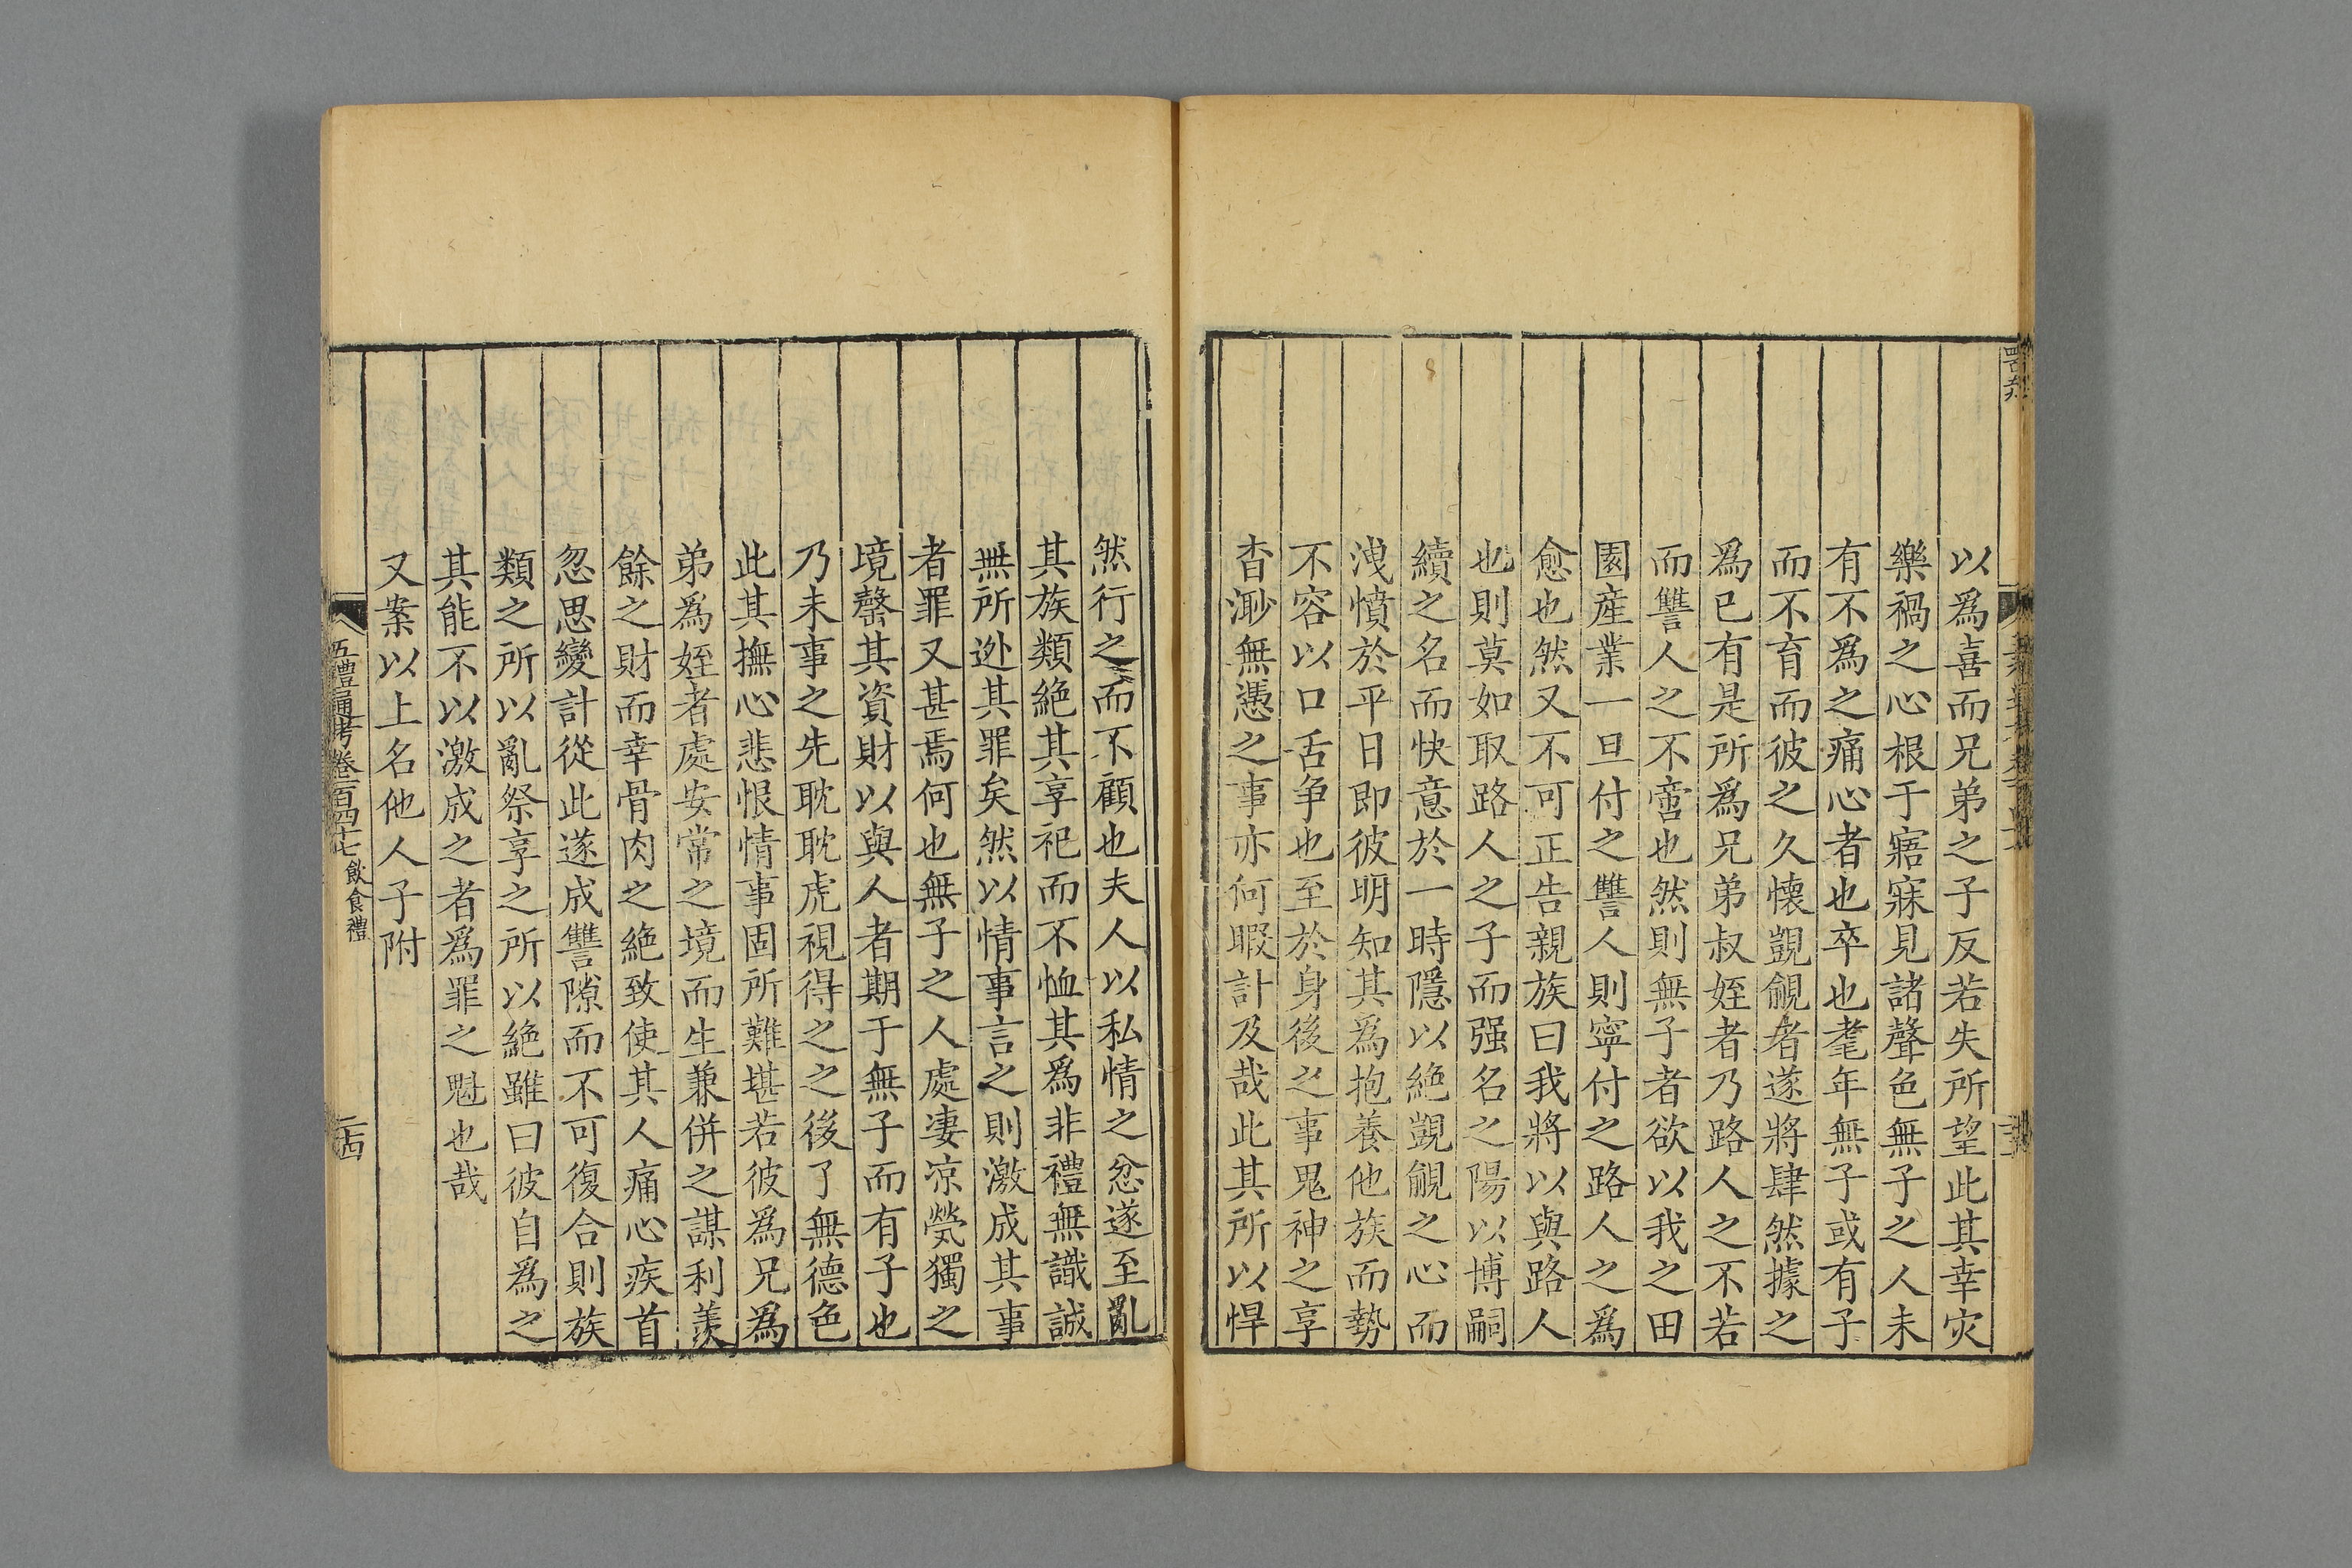 以爲喜而兄弟之子反若失所望此其幸灾
樂禍之心根于寤寐見諸聲色無子之人未
有不爲之痛心者也卒也耄年無子或有子
而不育而彼之久懐覬覦者遂將肆然據之
爲已有是所爲兄弟叔姪者乃路人之不若
而讐人之不啻也然則無子者欲以我之田
園産業一旦付之讐人則寧付之路人之爲
愈也然又不可正告親族曰我將以與路人
也則莫如取路人之子而强名之陽以博嗣
續之名而快意於一時隱以絶覬覦之心而
洩憤於平日即彼明知其爲抱養他族而勢
不容以口舌争也至於身後之事鬼神之享
杳渺無憑之事亦何暇計及哉此其所以悍
然行之而不顧也夫人以私情之忿遂至亂
其族類絶其享祀而不恤其爲非禮無識誠
無所逃其罪矣然以情事言之則激成其事
者罪又甚焉何也無子之人處凄凉煢獨之
境罄其資財以與人者期于無子而有子也
乃未事之先耽耽虎視得之之後了無德色
此其撫心悲恨情事固所難堪若彼爲兄爲
弟爲姪者處安常之境而生兼併之謀利羨
餘之財而幸骨肉之絶致使其人痛心疾首
忽思變計從此遂成讐隙而不可復合則族
類之所以亂祭享之所以絶雖曰彼自爲之
其能不以激成之者爲罪之魁也哉
又案以上名他人子附
五禮通考卷一百四十七 飲食禮 二十四